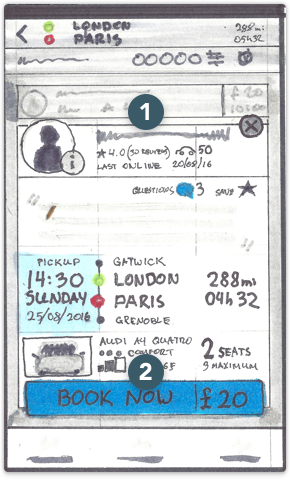 LONDON
PARIS
288mi
04h32
£20
10:00
1
4.0 (30 REVIEWS) 50
LAST ONLINE 20/08/16
QUESTIONS 3 SAVE
PICKUP
14:30
SUNDAY
25/08/2016
GATWICK
LONDON 288mi
PARIS 04h32
GRENOBLE
AUDI A4 QUATRO
COMFORT
2 SEATS
3 MAXIMUM
2
BOOK NOW £20